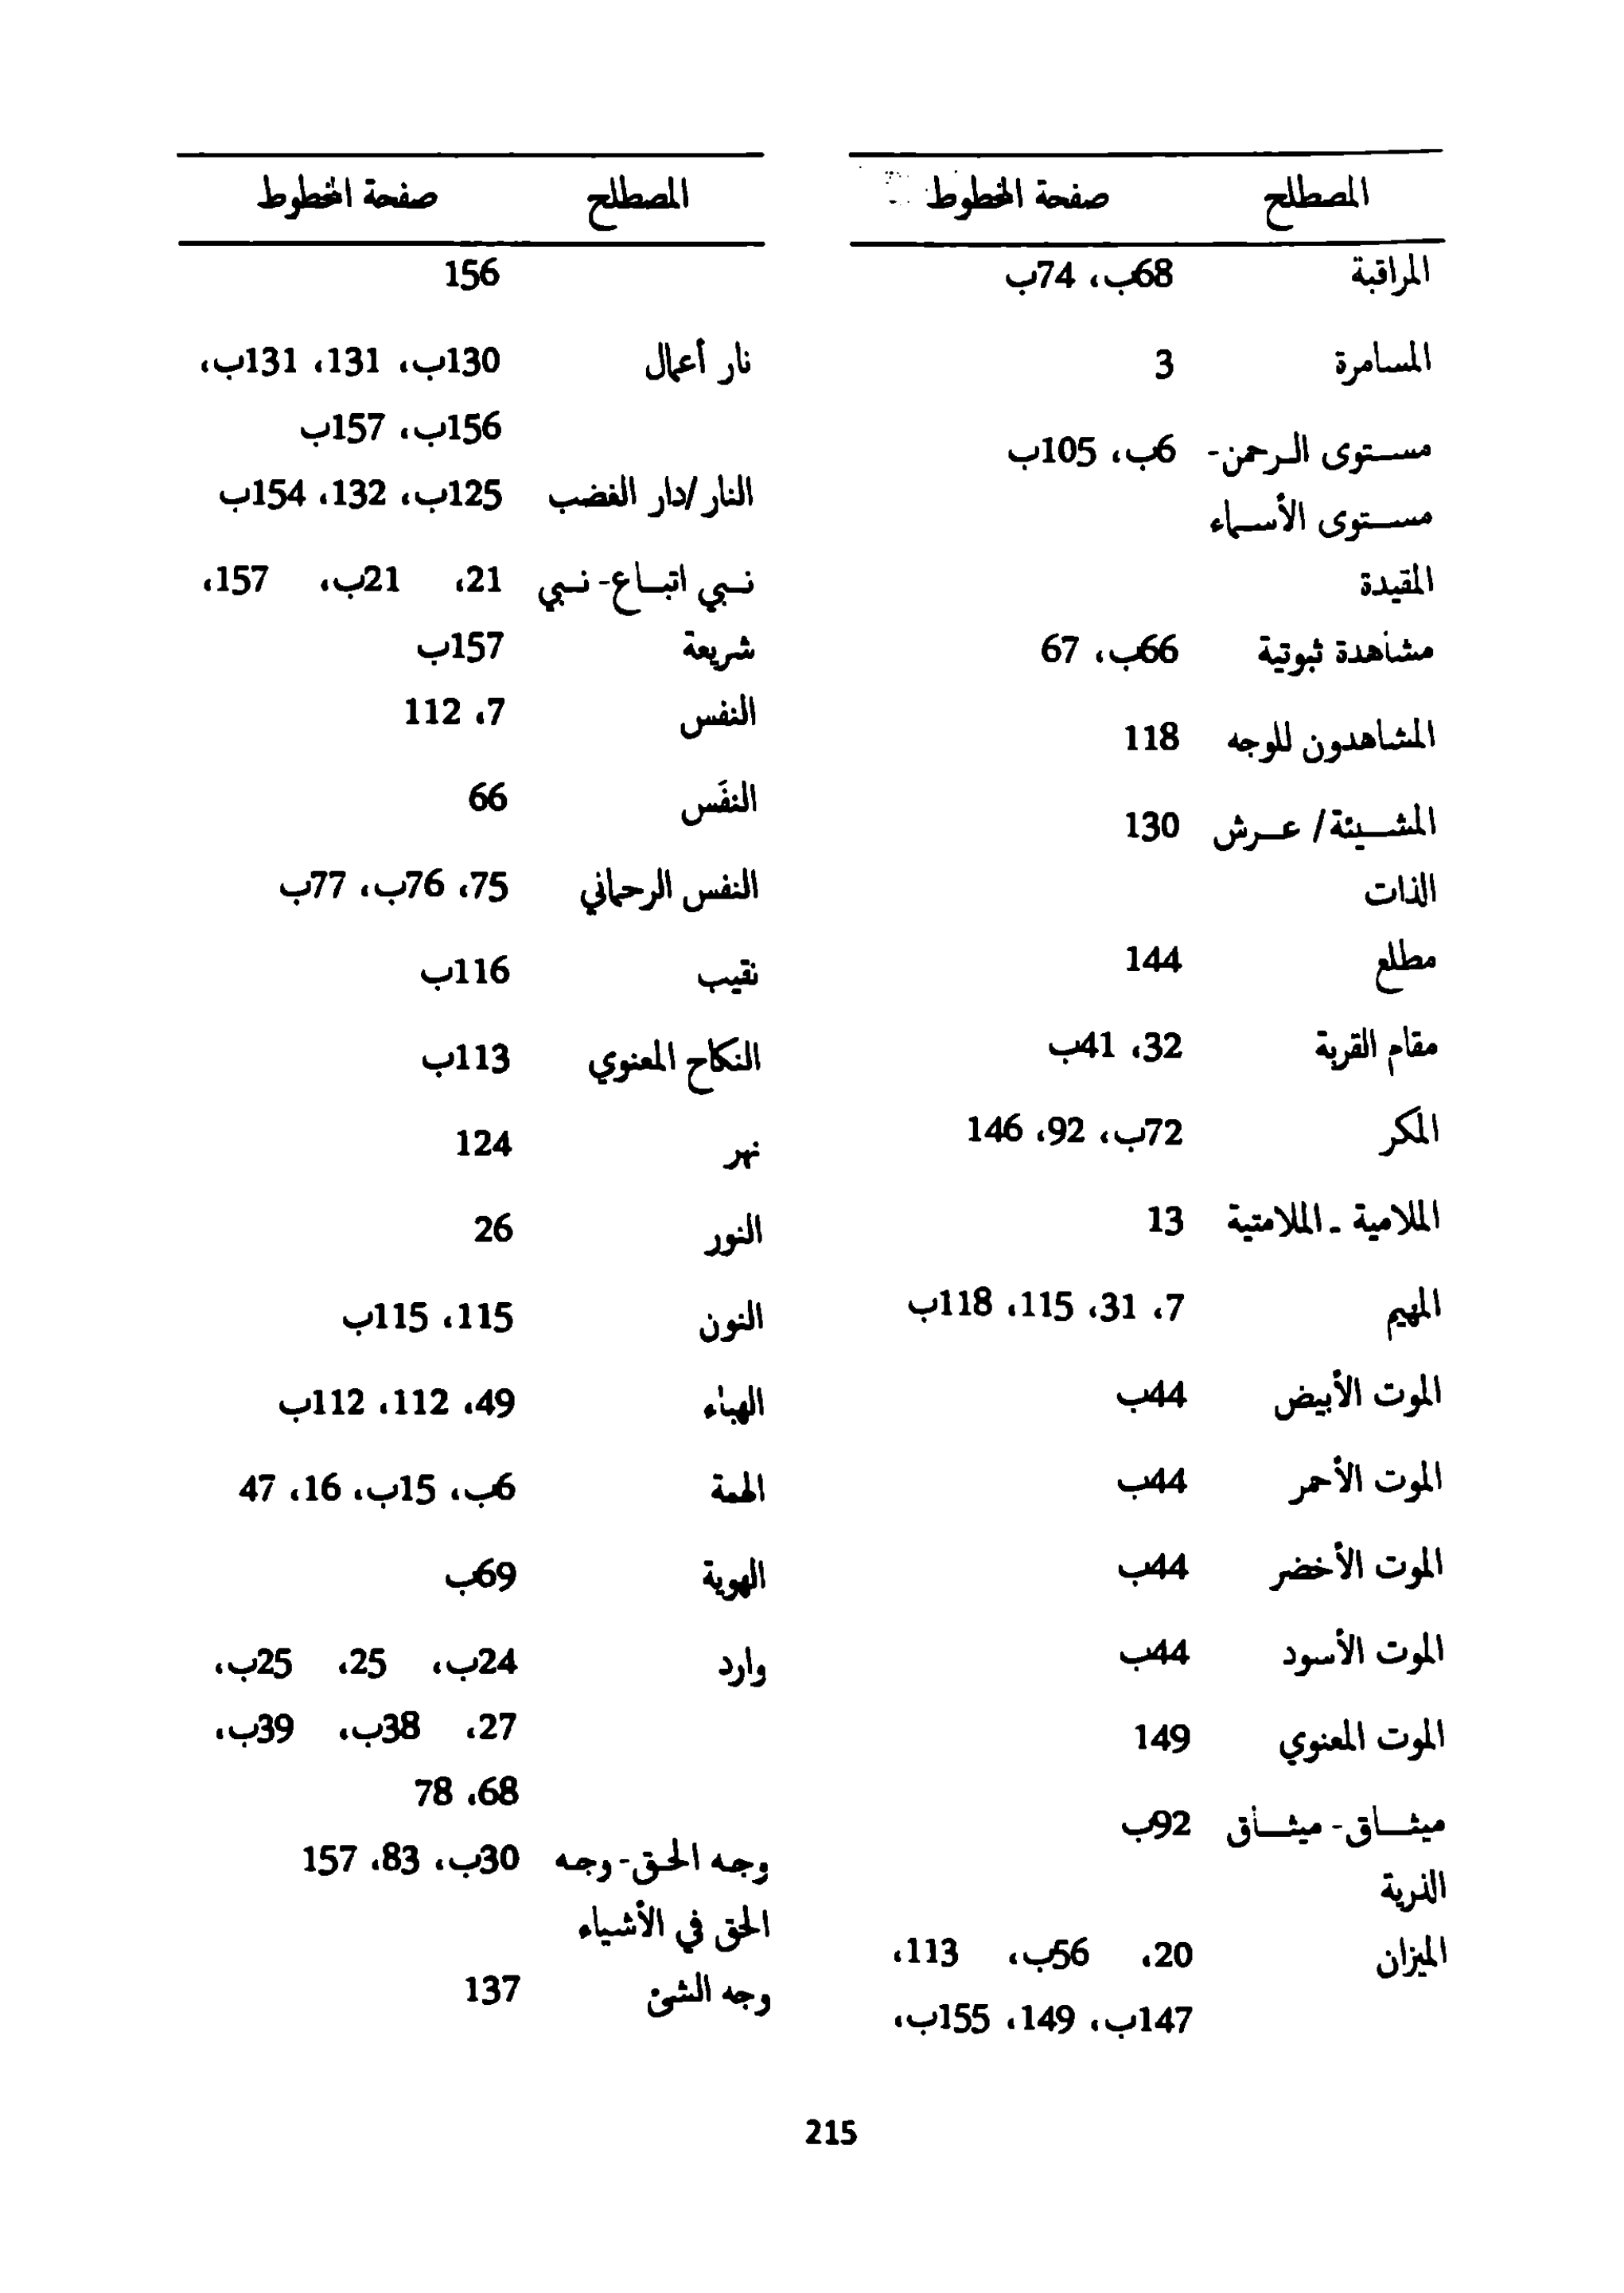 المصطلح صفحة المخطوط
المراقبة 68ب، 74ب
المسامرة 3
مستوى الرحمن- 6ب، 105ب
مستوى الأسماء
المقيدة
مشاهدة ثبوتية 66ب، 67
المشاهدون للوجه 118
المشيئة/ عرش 130
الذات
مطلع 144
مقام القربة 32، 41ب
المكر 72ب، 92، 146
الملامية ـ الملامتية 13
المهيم 7، 31، 115، 118ب
الموت الأبيض 44ب
الموت الأحمر 44ب
الموت الأخضر 44ب
الموت الأسود 44ب
الموت المعنوي 149
ميثاق- ميثاق 92ب
الذرية
الميزان 20، 56ب، 113،
147ب، 149، 155ب،
المصطلح صفحة المخطوط
156
نار أعمال 130ب، 131، 131ب،
156ب، 157ب
النار/دار الغضب 125ب، 132، 154ب
نبي اتباع- نبي 21، 21ب، 157،
شريعة 157ب
النفس 7، 112
النفَس 66
النفس الرحماني 75، 76ب، 77ب
نقيب 116ب
النكاح المعنوي 113ب
نهر 124
النور 26
النون 115، 115ب
الهباء 49، 112، 112ب
الهمة 6ب، 15ب، 16، 47
الهوية 69ب
وارد 24ب، 25، 25ب،
27، 38ب، 39ب،
68، 78
وجه الحق- وجه 30ب، 83، 157
الحق في الأشياء
وجه الشئ 137
215